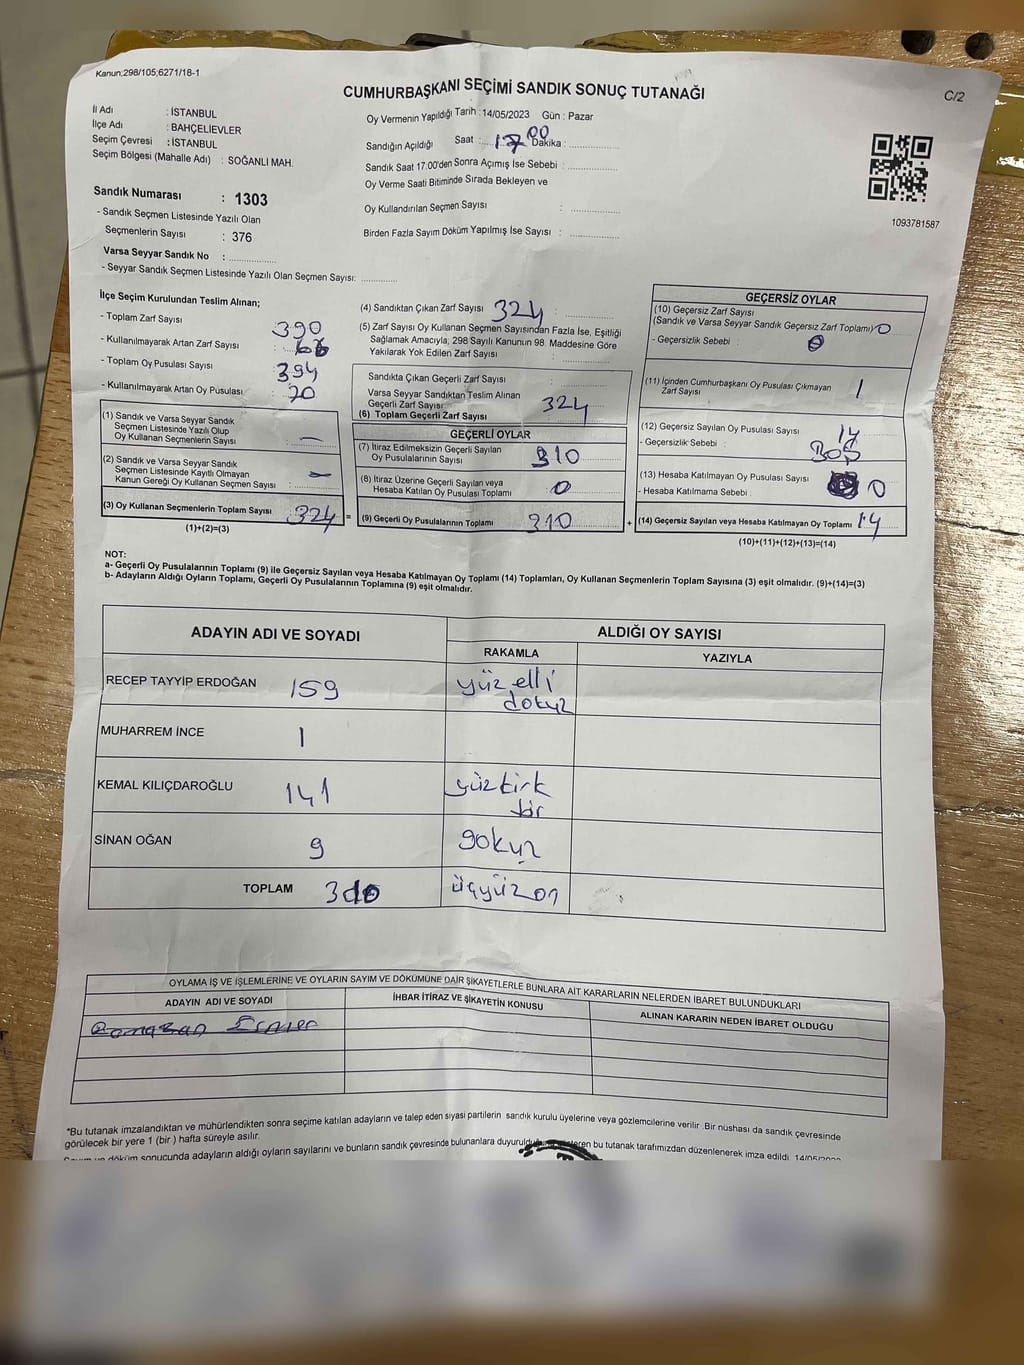 Kanun;298/105;6271/18-1
CUMHURBAŞKANI SEÇİMİ SANDIK SONUÇ TUTANAĞI
C/2
İl Adı : İSTANBUL
İlçe Adı : BAHÇELİEVLER
Seçim Çevresi : İSTANBUL
Seçim Bölgesi (Mahalle Adı) : SOĞANLI MAH.
Sandık Numarası : 1303
- Sandık Seçmen Listesinde Yazılı Olan
Seçmenlerin Sayısı : 376
Varsa Seyyar Sandık No :
- Seyyar Sandık Seçmen Listesinde Yazılı Olan Seçmen Sayısı:
Oy Vermenin Yapıldığı Tarih : 14/05/2023 Gün : Pazar
Sandığın Açıldığı Saat : 17 00 Dakika :
Sandık Saat 17:00'den Sonra Açımış İse Sebebi :
Oy Verme Saati Bitiminde Sırada Bekleyen ve
Oy Kullandırılan Seçmen Sayısı :
Birden Fazla Sayım Döküm Yapılmış İse Sayısı :
1093781587
İlçe Seçim Kurulundan Teslim Alınan;
- Toplam Zarf Sayısı 390
- Kullanılmayarak Artan Zarf Sayısı : 66
- Toplam Oy Pusulası Sayısı 394
- Kullanılmayarak Artan Oy Pusulası : 70
(1) Sandık ve Varsa Seyyar Sandık
Seçmen Listesinde Yazılı Olup
Oy Kullanan Seçmenlerin Sayısı : —
(2) Sandık ve Varsa Seyyar Sandık
Seçmen Listesinde Kayıtlı Olmayan
Kanun Gereği Oy Kullanan Seçmen Sayısı : —
(3) Oy Kullanan Seçmenlerin Toplam Sayısı 324 =
(1)+(2)=(3)
(4) Sandıktan Çıkan Zarf Sayısı 324 :
(5) Zarf Sayısı Oy Kullanan Seçmen Sayısından Fazla İse, Eşitliği
Sağlamak Amacıyla, 298 Sayılı Kanunun 98. Maddesine Göre
Yakılarak Yok Edilen Zarf Sayısı :
Sandıkta Çıkan Geçerli Zarf Sayısı :
Varsa Seyyar Sandıktan Teslim Alınan
Geçerli Zarf Sayısı :
(6) Toplam Geçerli Zarf Sayısı 324
GEÇERLİ OYLAR
(7) İtiraz Edilmeksizin Geçerli Sayılan
Oy Pusulalarının Sayısı 310
(8) İtiraz Üzerine Geçerli Sayılan veya
Hesaba Katılan Oy Pusulası Toplamı 0
(9) Geçerli Oy Pusulalarının Toplamı 310 +
GEÇERSİZ OYLAR
(10) Geçersiz Zarf Sayısı
(Sandık ve Varsa Seyyar Sandık Geçersiz Zarf Toplamı) 0
- Geçersizlik Sebebi : 0
(11) İçinden Cumhurbaşkanı Oy Pusulası Çıkmayan
Zarf Sayısı 1
(12) Geçersiz Sayılan Oy Pusulası Sayısı
- Geçersizlik Sebebi :
(13) Hesaba Katılmayan Oy Pusulası Sayısı 0
- Hesaba Katılmama Sebebi :
(14) Geçersiz Sayılan veya Hesaba Katılmayan Oy Toplamı 14
(10)+(11)+(12)+(13)=(14)
NOT:
a- Geçerli Oy Pusulalarının Toplamı (9) ile Geçersiz Sayılan veya Hesaba Katılmayan Oy Toplamı (14) Toplamları, Oy Kullanan Seçmenlerin Toplam Sayısına (3) eşit olmalıdır. (9)+(14)=(3)
b- Adayların Aldığı Oyların Toplamı, Geçerli Oy Pusulalarının Toplamına (9) eşit olmalıdır.
ADAYIN ADI VE SOYADI ALDIĞI OY SAYISI
RAKAMLA YAZIYLA
RECEP TAYYİP ERDOĞAN 159 yüz elli
dokuz
MUHARREM İNCE 1
KEMAL KILIÇDAROĞLU 141 yüzkırk
bir
SİNAN OĞAN 9
TOPLAM üçyüzon
OYLAMA İŞ VE İŞLEMLERİNE VE OYLARIN SAYIM VE DÖKÜMÜNE DAİR ŞİKAYETLERLE BUNLARA AİT KARARLARIN NELERDEN İBARET BULUNDUKLARI
ADAYIN ADI VE SOYADI İHBAR İTİRAZ VE ŞİKAYETİN KONUSU ALINAN KARARIN NEDEN İBARET OLDUĞU
*Bu tutanak imzalandıktan ve mühürlendikten sonra seçime katılan adayların ve talep eden siyasi partilerin sandık kurulu üyelerine veya gözlemcilerine verilir. Bir nüshası da sandık çevresinde
görülecek bir yere 1 (bir ) hafta süreyle asılır.
döküm sonucunda adayların aldığı oyların sayılarını ve bunların sandık çevresinde bulunanlara bu tutanak tarafımızdan düzenlenerek imza edildi.